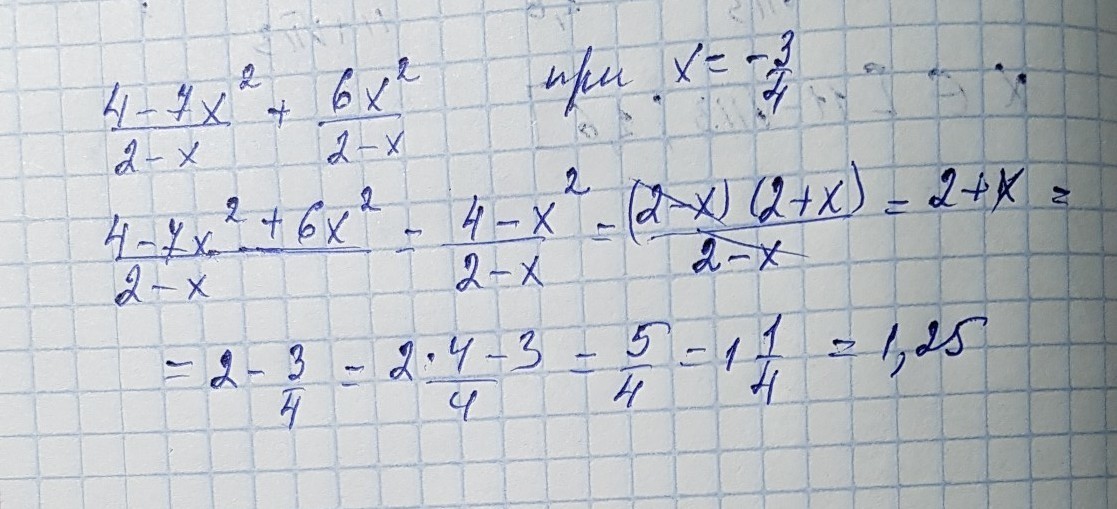 (4-7x²)/(2-x) + 6x²/(2-x) при x = -3/4
(4-7x²+6x²)/(2-x) = (4-x²)/(2-x) = (2-x)(2+x)/(2-x) = 2+x =
= 2 - 3/4 = (2·4-3)/4 = 5/4 = 1 1/4 = 1,25